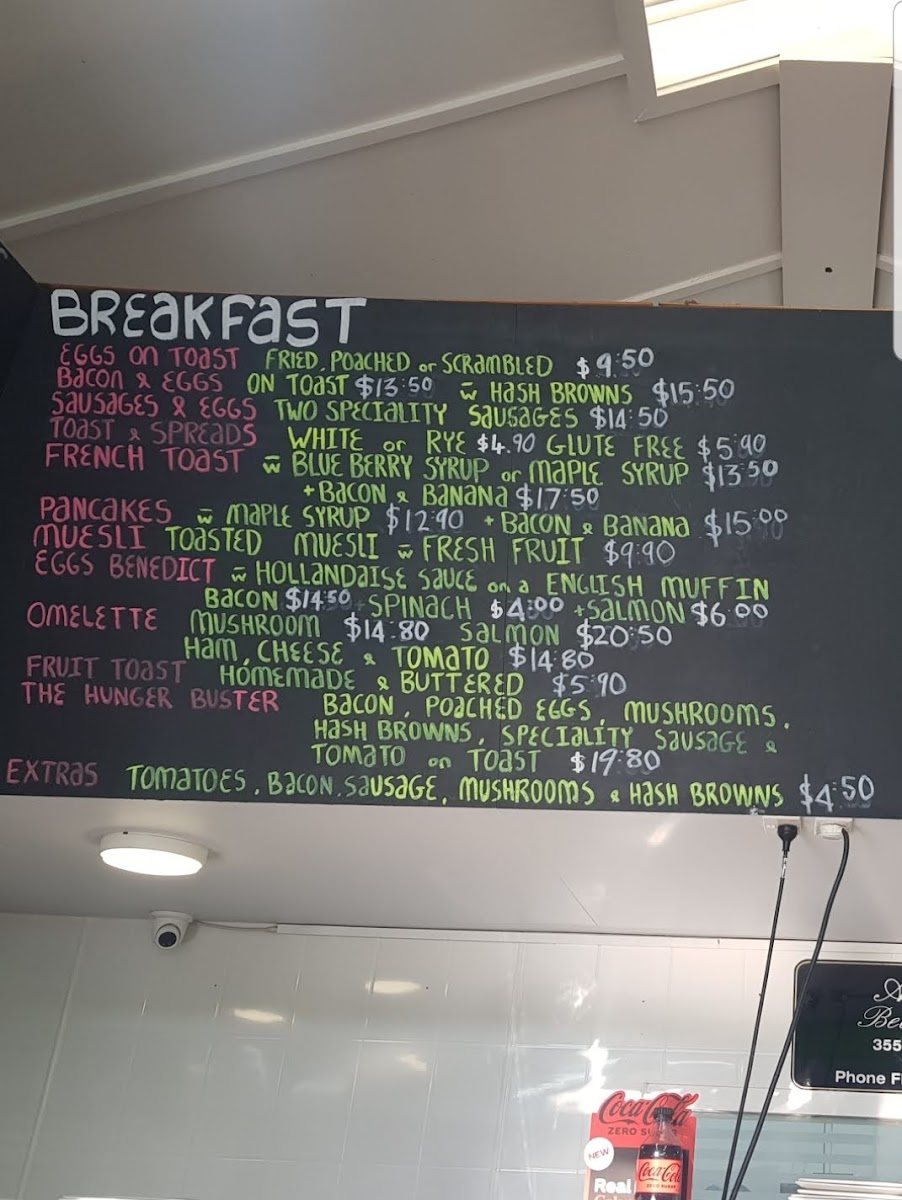 BREAKFAST
EGGS ON TOAST FRIED, POACHED or SCRAMBLED $9.50
BACON & EGGS ON TOAST $13.50 w̄ HASH BROWNS $15.50
SAUSAGES & EGGS TWO SPECIALITY SAUSAGES $14.50
TOAST & SPREADS WHITE or RYE $4.90 GLUTE FREE $5.90
FRENCH TOAST w̄ BLUE BERRY SYRUP or MAPLE SYRUP $13.50
+ BACON & BANANA $17.50
PANCAKES w̄ MAPLE SYRUP $12.90 + BACON & BANANA $15.00
MUESLI TOASTED MUESLI w̄ FRESH FRUIT $9.90
EGGS BENEDICT w̄ HOLLANDAISE SAUCE on a ENGLISH MUFFIN
BACON $14.50 + SPINACH $4.00 + SALMON $6.00
OMELETTE MUSHROOM $14.80 SALMON $20.50
HAM, CHEESE & TOMATO $14.80
FRUIT TOAST HOMEMADE & BUTTERED $5.90
THE HUNGER BUSTER BACON, POACHED EGGS, MUSHROOMS,
HASH BROWNS, SPECIALITY SAUSAGE &
TOMATO on TOAST $19.80
EXTRAS TOMATOES, BACON, SAUSAGE, MUSHROOMS & HASH BROWNS $4.50
355
Phone
Coca-Cola
ZERO
NEW
Real
Coca-Cola